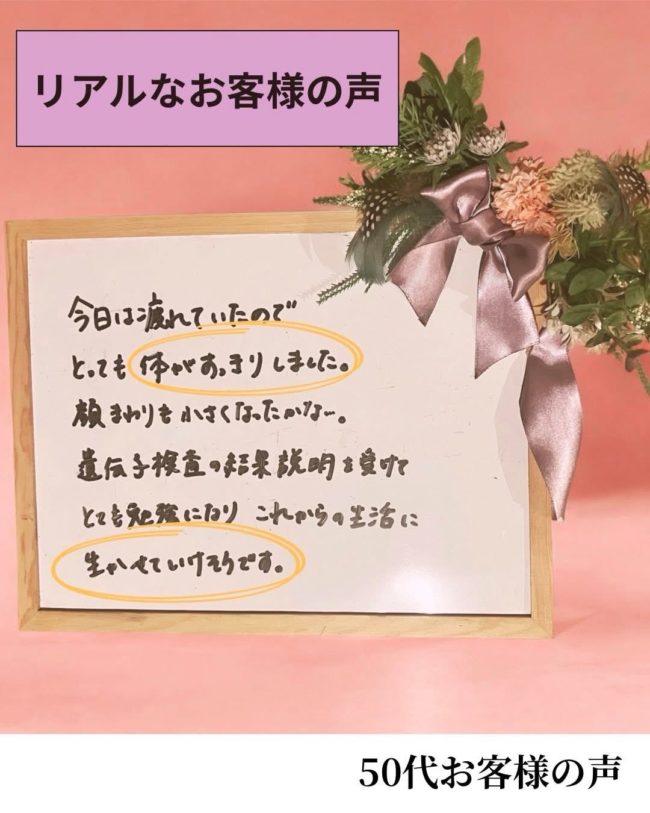 リアルなお客様の声
今日は疲れていたので
とっても体がすっきりしました。
顔まわりも小さくなったかな…。
遺伝子検査の結果説明を受けて
とても勉強になり これからの生活に
生かせていけそうです。
50代お客様の声